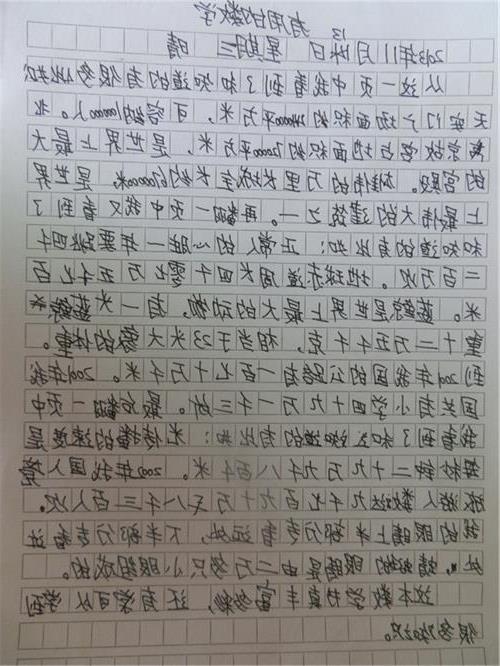 有用的数学
2013年11月13日 星期三 晴
从这一页中我看到了和知道的有很多比如
天安门广场面积约440000平方米,可容纳1000000人。北
京故宫占地面积约720000平方米,是世界上最大
的宫殿。雄伟的万里长城全长约6700000米。是世界
上最伟大的建筑之一。再翻一页中我又看到了
和知道的有比如:正常人的心脏一年要跳四十
二百万次。地球赤道周长四千零七万五千七百
米。蓝鲸是世界上最大的动物,有一头蓝鲸
重十二万五千千克,相当于25头大象的体重。
到2002年我国的公路有一百七十万千米。2002年我
国共有小学四十六万一千三所。最后翻一页中
我看到了和知道的有比如:光传播的速度是
每秒钟二十九万九千八百千米。2002年我国入境
旅游人数达九千七百九十万八千三百人次。
的眼睛上半部分专看远处,下半部分专看近
处。蜻蜓的眼睛是由二万多只小眼组成的。
这本数学书真丰富多彩,还有家可以学到
很多知识。